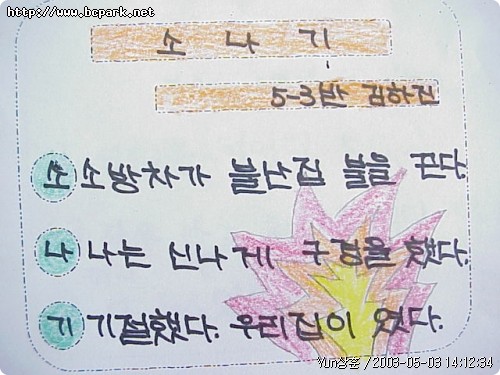 http://www.bcpark.net
소 나 기
5-3반 김하진
소 소방차가 불난집 불을 끈다.
나 나는 신나게 구경을 했다.
기 기절했다. 우리집이 었다.
Yun상준 / 2003-05-03 14:12:34